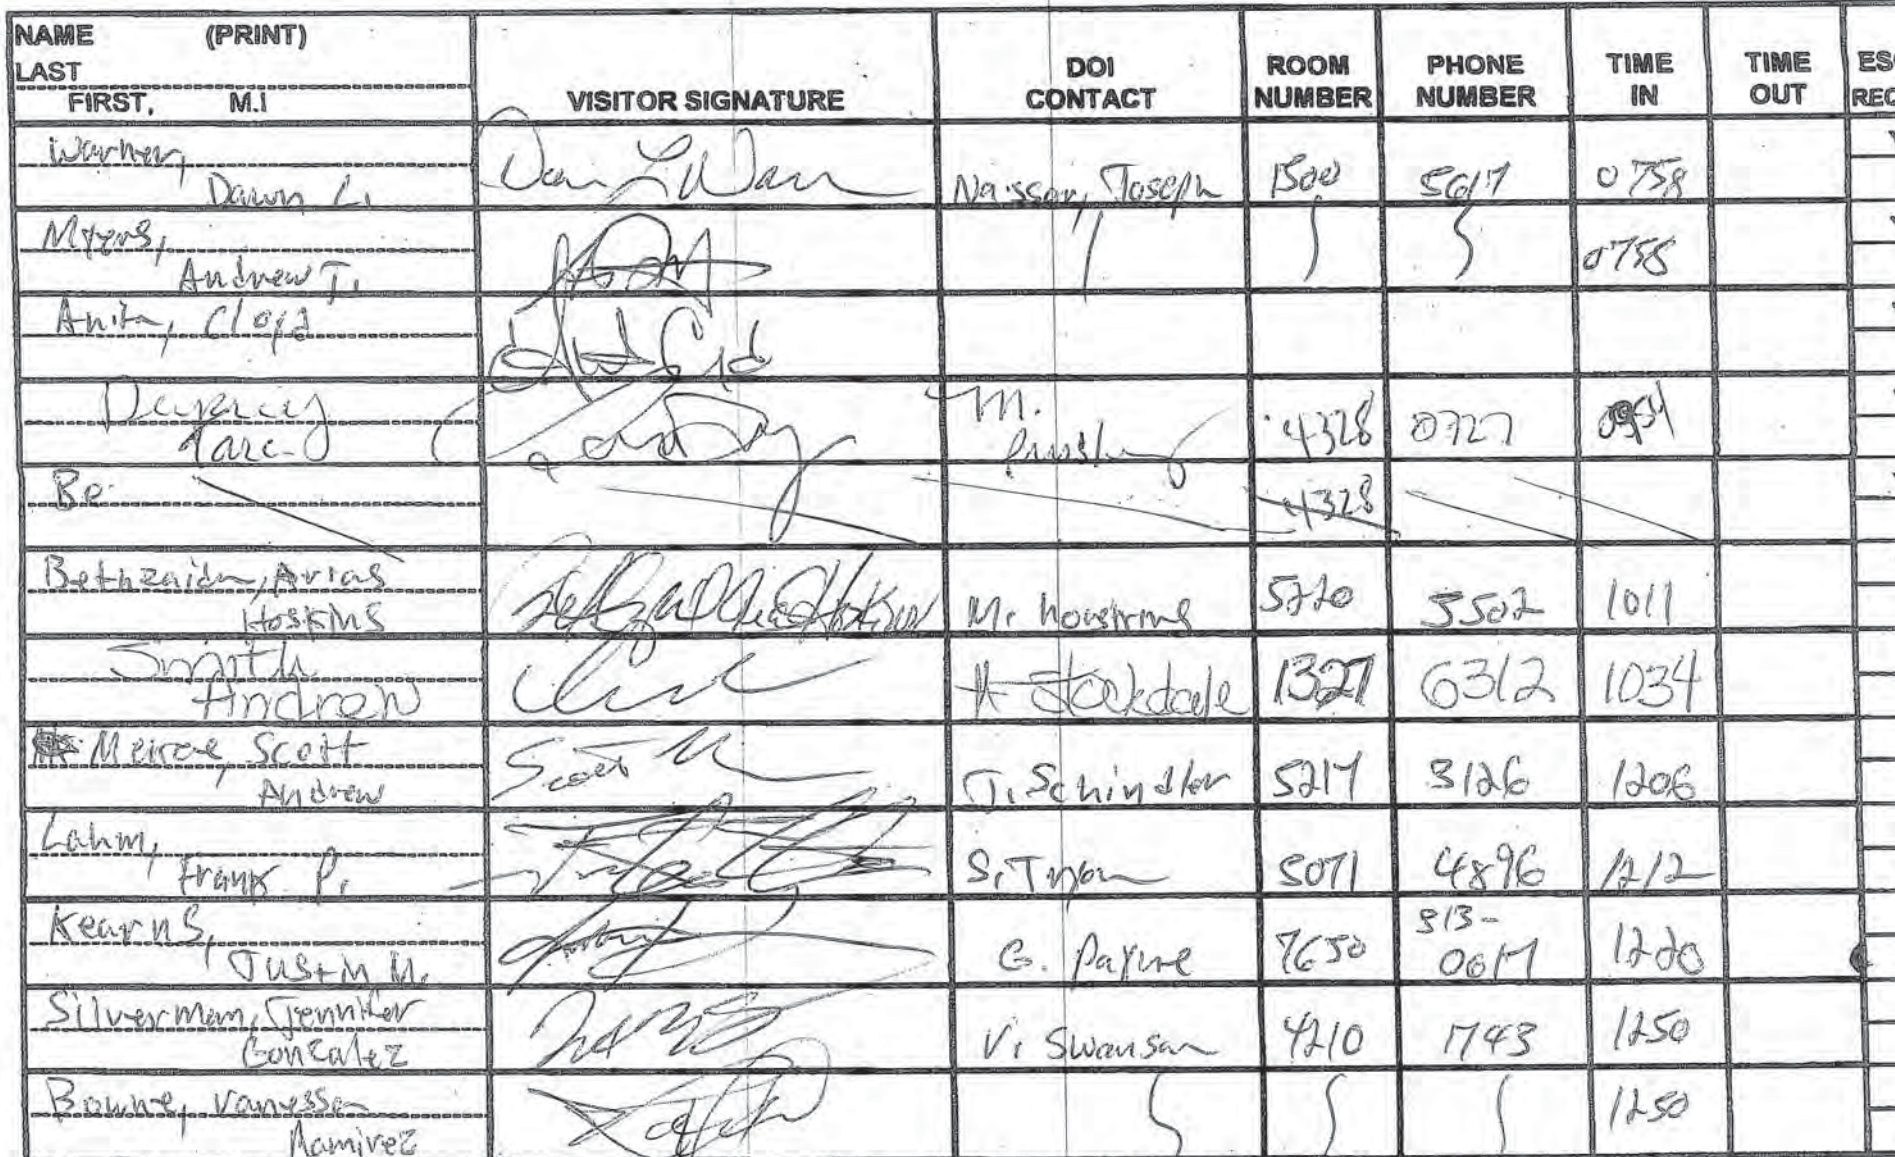 NAME (PRINT)
LAST
FIRST, M.I
VISITOR SIGNATURE
DOI
CONTACT
ROOM
NUMBER
PHONE
NUMBER
TIME
IN
TIME
OUT
Warner,
Dawn L. Nassar, Joseph 1500 5617 0758
Myers,
Andrew T. 0758
Anita, Cloyd
M.
4328 0727
Be
4328
Bethzaida, Arias
Hoskins M. 5220 5502 1011
Smith
Andrew A Stockdale 1327 6312 1034
Scott
Andrew T. Schindler 5217 3126 1206
Lahm,
Frank P. S. Tryon 5071 4896 1212
Kearns, 513-
Justin M. G. Payne 7650 0617 1220
Silverman, Jennifer
Gonzalez V. Swanson 4210 1743 1250
Bowne, Vanessa
Ramirez 1250